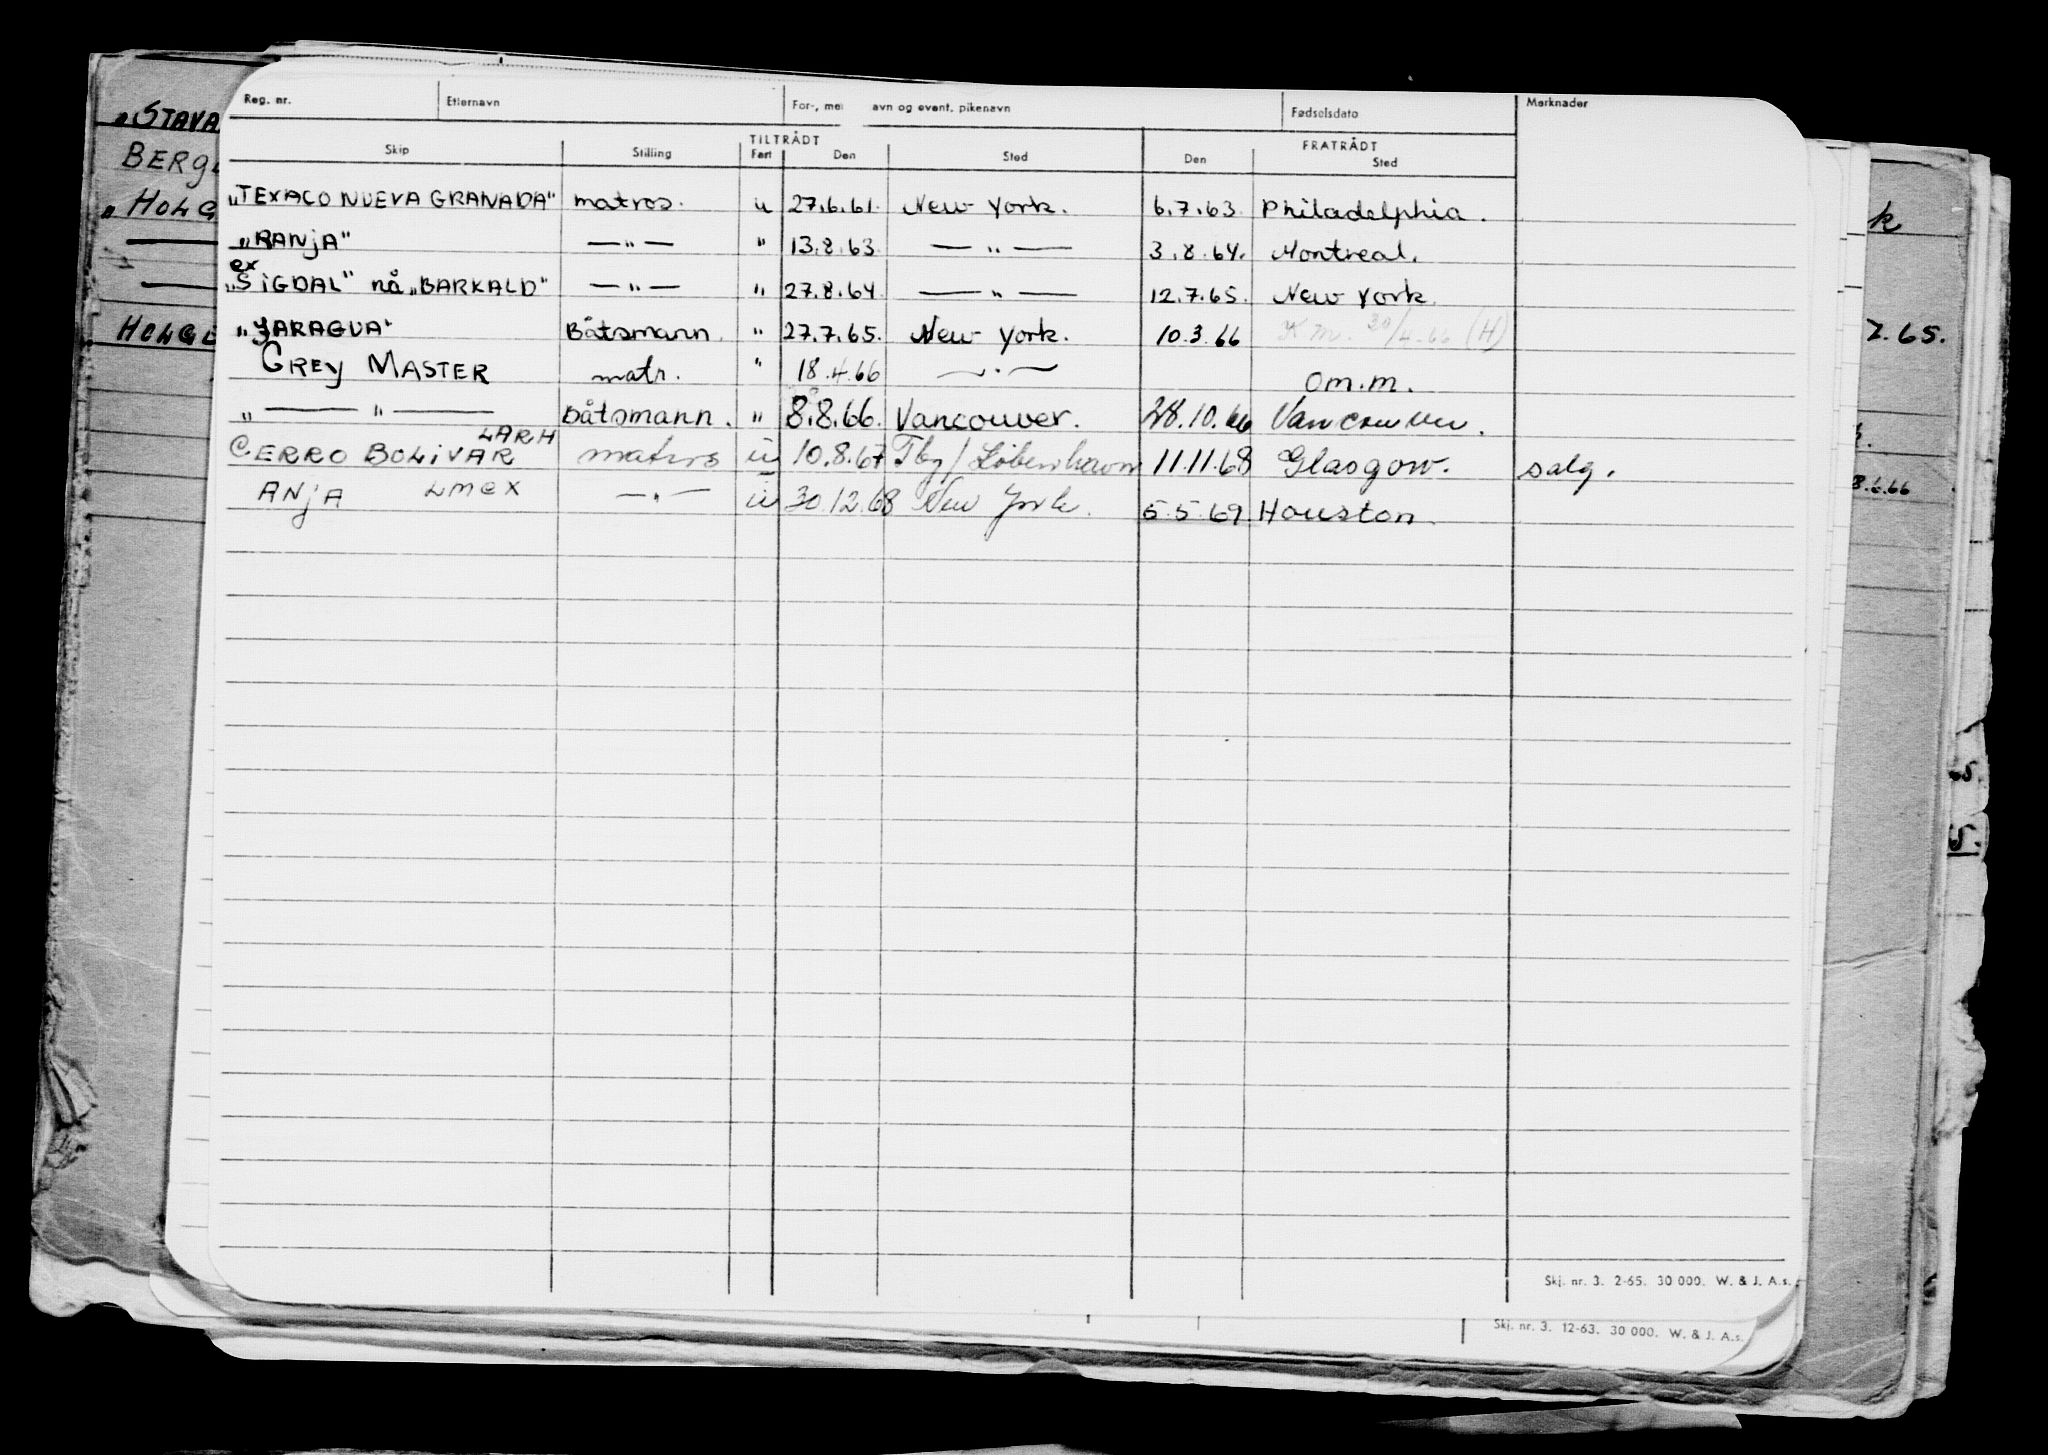 Reg. nr. Etternavn For-, me avn og event, pikenavn Fødselsdato Merknader
TILTRÅDT FRATRÅDT
Skip Stilling Fart Den Sted Den Sted
"TEXACO NUEVA GRANADA" matros. u 27.6.61. New York. 6.7.63. Philadelphia.
"RANJA" —"— " 13.8.63. —"— 3.8.64. Montreal.
ex
"SIGDAL" nå "BARKALD" —"— " 27.8.64. —"— 12.7.65. New York.
"YARAGUA" Båtsmann. " 27.7.65. New York. 10.3.66 K m. 30/4.66 (H)
GREY MASTER matr. " 18.4.66 —"— om.m.
"—"— Båtsmann. " 8.8.66. Vancouver. 28.10.66 Vancouver.
LARH
CERRO BOLIVAR matros u 10.8.67 Tbg/ 11.11.68 Glasgow. salg.
ANJA LMEX —"— u 30.12.68 New York. 5.5.69 Houston.
Skj. nr. 3. 2-65. 30 000. W. & J. A.s.
Skj. nr. 3. 12-63. 30 000. W. & J. A.s.
"STAVA
BERGE
"HOLG
HOLGE
k
7.65.
8.6.66
5.
5.